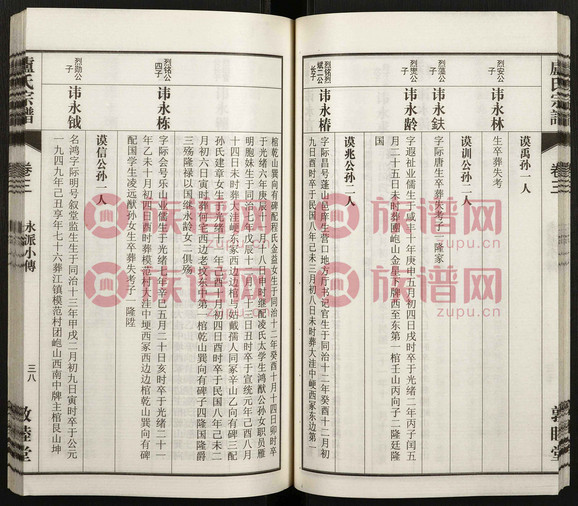 盧氏宗譜
卷三
敦睦堂
谟禹孙一人
烈安公子
讳永林
生卒葬失考
谟训公孙二人
烈藻公子
讳永鈇
字际唐生卒葬失考子一隆家
烈兕公子
讳永龄
字遐祉业儒生于咸丰十年庚申五月初四日戌时卒于光绪二年丙子闰五
月二十五日未时葬團庖山金星下牌西至东第一棺壬山丙向子二隆廷隆
国
谟兆公孙二人
烈铭公嗣二公长子
讳永椿
字际昌号蓬山邑庠生营口地方厅书记官生于同治十二年癸酉十二月初
九日酉时卒于民国八年己未三月初八日未时葬大洼中峺西冢东边第一
棺乾山巽向有碑配程氏金益女生于同治十二年癸酉十月十四日卯时卒
于光绪六年庚辰十一月十八日申时继配凌氏太学生鸿猷公孙女职员雁
明胞妹生于同治七年戊辰十一月二十三日丑时卒于宣统元年己酉八月
十四日未时葬大洼峺东冢西边边棺与姑戴孺人同冢辛山乙向有碑三配
孙氏建章女生于光绪
年己酉十月初四日酉时卒于民国八年己未二
月初六日寅时葬何宅西边老坟东中第一棺乾山巽向有碑子四隆国隆爵
三殇隆禄以国继永龄女二俱殇
烈铭公四子
讳永栋
字际会号乐山业儒生于光绪七年辛巳五月二十日亥时卒于光绪二十一
年乙未十月初四日酉时葬模范村大洼中埂西冢西边边棺乾山巽向有碑
配国学生凌远猷孙女生卒葬失考子一隆陞
谟信公孙一人
烈勋公子
讳永钺
名鸿字际明号叙堂监生生于同治十三年甲戌二月初九日寅时卒于公元
一九四九年己丑享年七十六葬江镇模范村团庖山西南中牌主棺艮山坤
盧氏宗譜
卷三
永派小傳
三八
敦睦堂
族谱网
zupu.cn
族谱网
zupu.cn
族谱网
zupu.cn
族谱网
zupu.cn